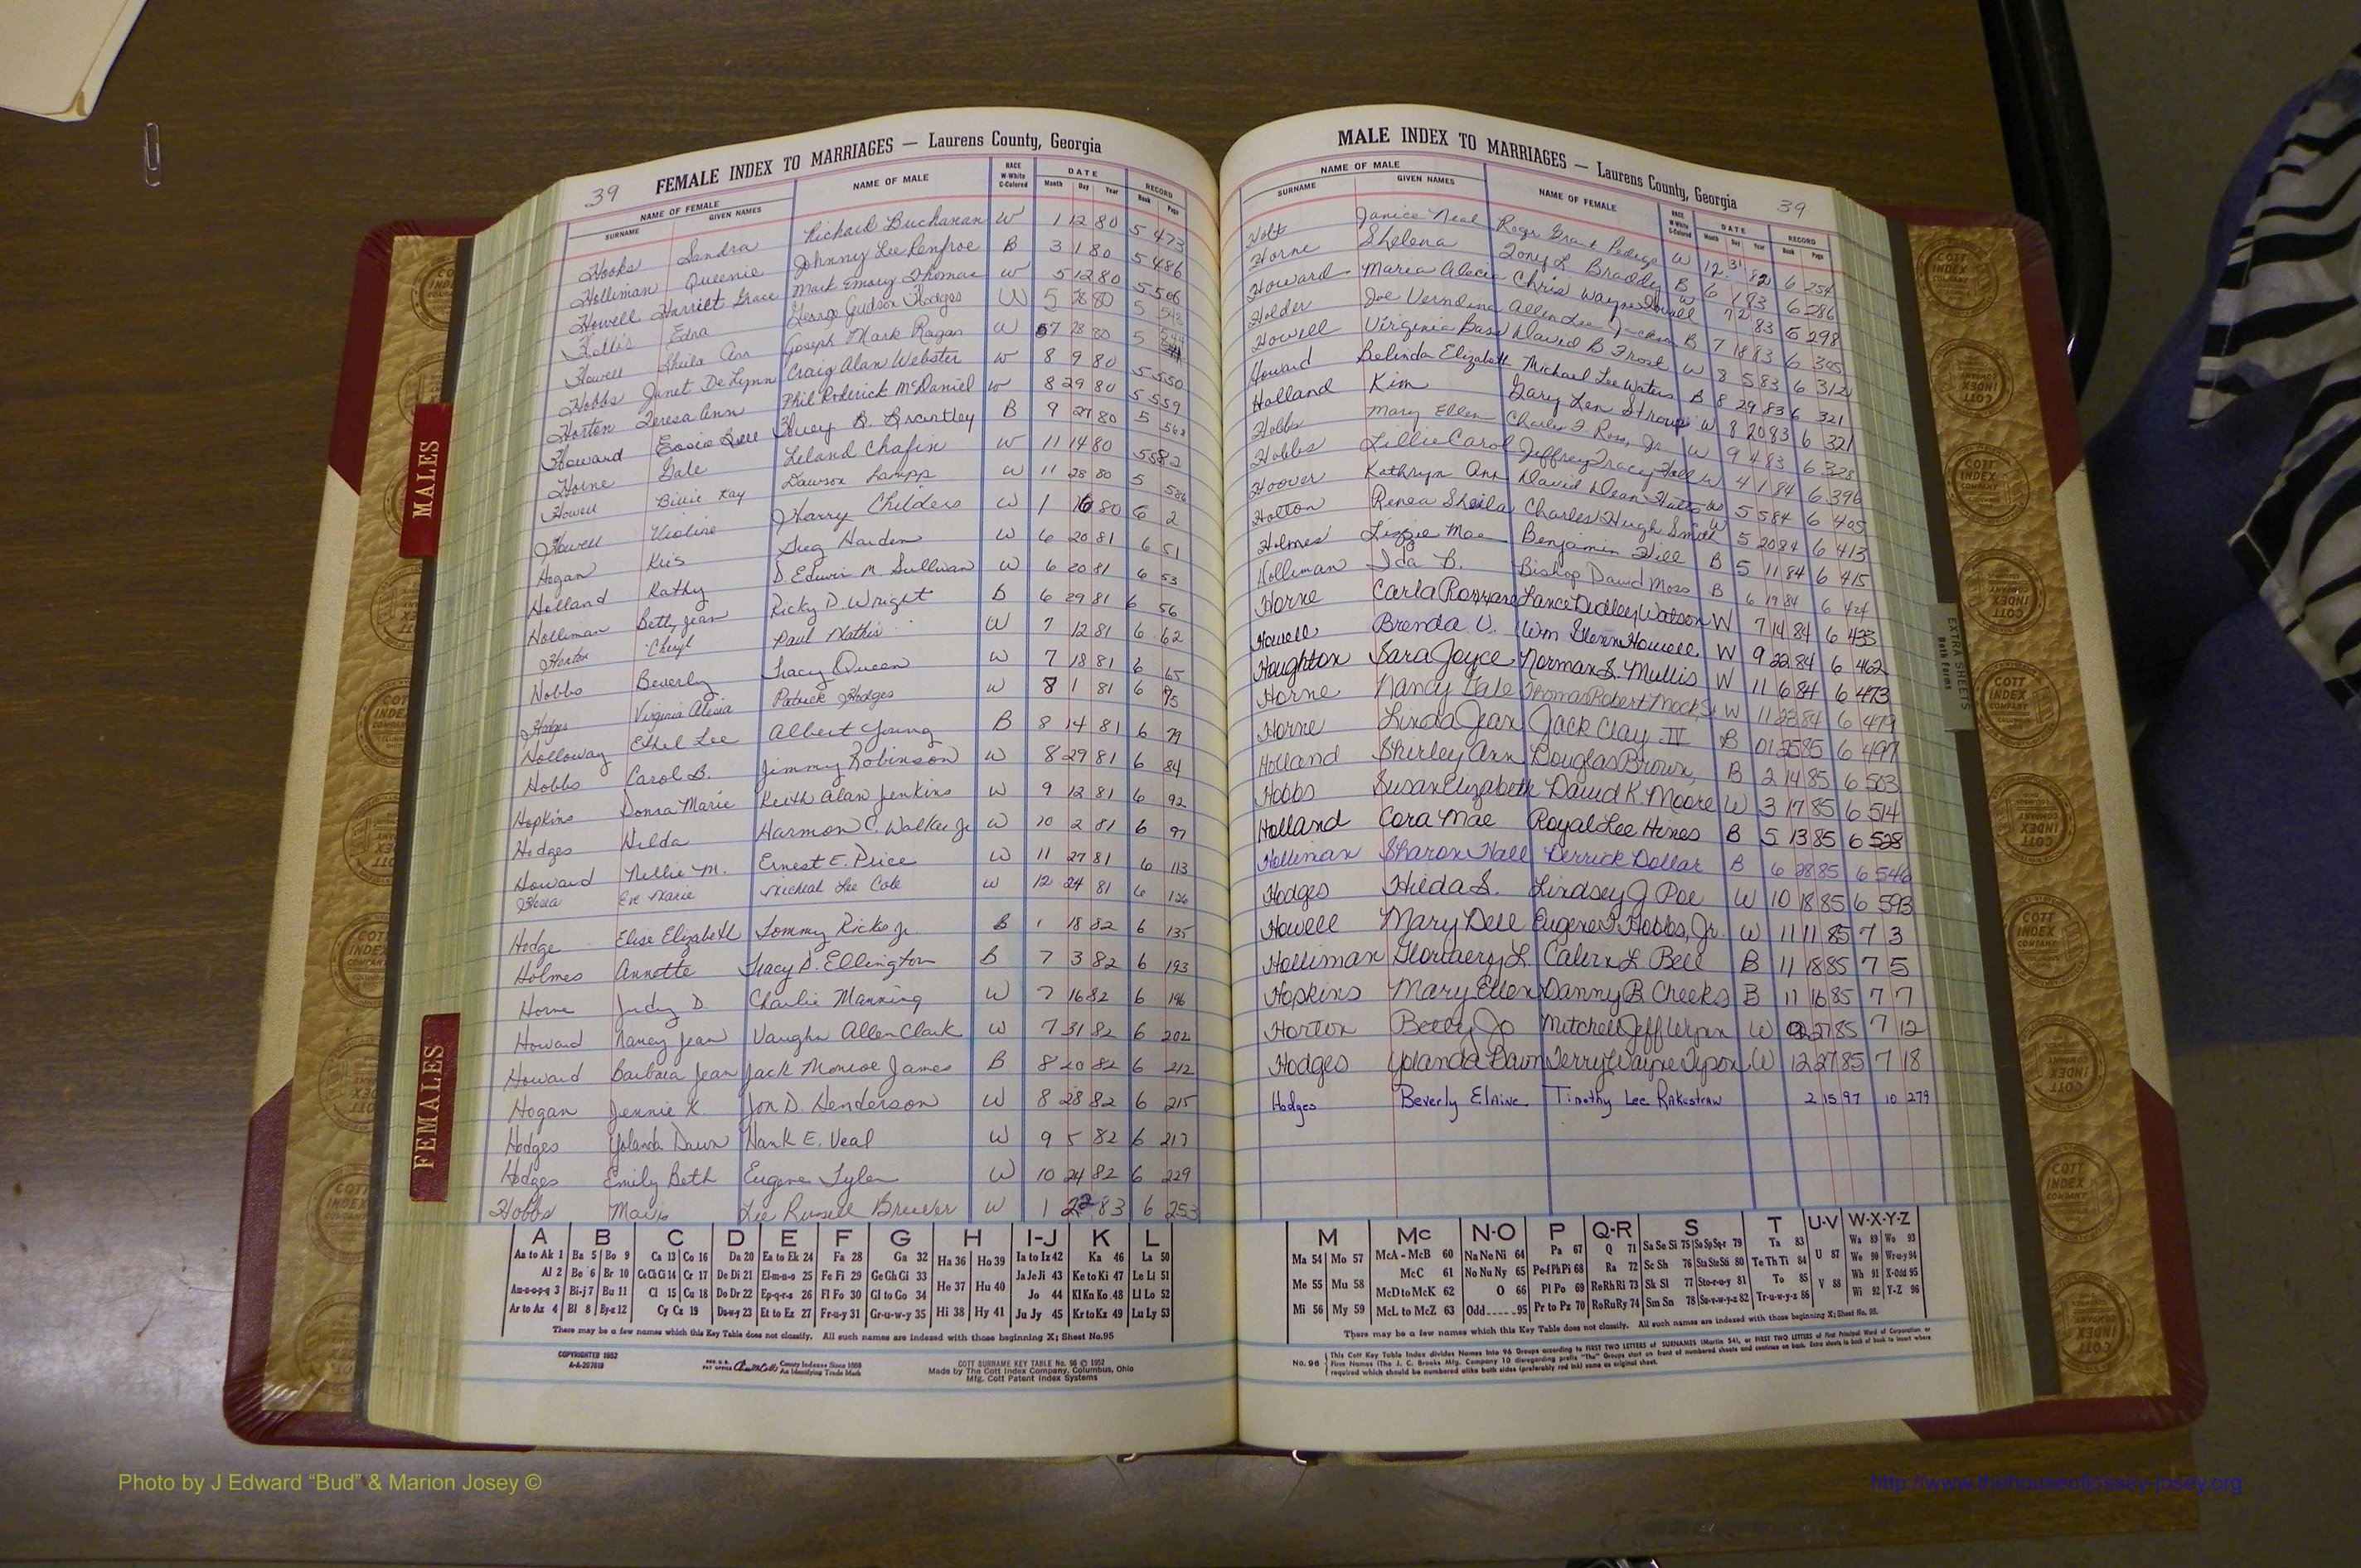 39 FEMALE INDEX TO MARRIAGES — Laurens County, Georgia
NAME OF FEMALE NAME OF MALE RACE W-White C-Colored DATE RECORD
SURNAME GIVEN NAMES Month Day Year Book Page
Hooks Sandra Richard Buchanan W 1 12 80 5 473
Holliman Queenie Johnny Lee Renfroe B 3 1 80 5 486
Howell Harriet Grace Mark Emory Thomas W 5 12 80 5 506
Hollis Edna George Judson Hodges W 5 28 80 5
Howell Sheila Ann Joseph Mark Ragan W 7 28 80 5
Hobbs Janet DeLynn Craig Alan Webster W 8 9 80 5 550
Horton Teresa Ann Phil Roderick McDaniel W 8 29 80 5 559
Howard Essie Bell Huey B. Brantley B 9 27 80 5 568
Horne Gale Leland Chafin W 11 14 80 5 582
Howell Billie Kay Dawson Lampp W 11 28 80 5 586
Howell Violine Harry Childers W 1 16 80 6 2
Hogan Kris Greg Harden W 6 20 81 6 51
Holland Kathy D. Edwin M. Sullivan W 6 20 81 6 53
Holliman Betty Jean Ricky D. Wright B 6 29 81 6 56
Horton Cheryl Paul Mathis W 7 12 81 6 62
Hobbs Beverly Tracy Queen W 7 18 81 6 65
Hodges Virginia Alesia Patrick Hodges W 8 1 81 6 75
Holloway Ethel Lee Albert Young B 8 14 81 6 79
Hobbs Carol B. Jimmy Robinson W 8 29 81 6 84
Hopkins Donna Marie Keith Alan Jenkins W 9 12 81 6 92
Hodges Hilda Harmon C. Walker Jr W 10 2 81 6 97
Howard Nellie M. Ernest E. Price W 11 27 81 6 113
Hosea Eve Marie Micheal Lee Cole W 12 24 81 6 126
Hodge Elise Elizabeth Tommy Ricks Jr. B 1 18 82 6 135
Holmes Annette Tracy D. Ellington B 7 3 82 6 193
Horne Judy D. Charlie Manning W 7 16 82 6 196
Howard Nancy Jean Vaughn Allen Clark W 7 31 82 6 202
Howard Barbara Jean Jack Monroe James B 8 20 82 6 212
Hogan Jennie K. Jon D. Henderson W 8 28 82 6 215
Hodges Yolanda Dawn Hank E. Veal W 9 5 82 6 217
Hodges Emily Beth Eugene Tyler W 10 24 82 6 229
Hobbs Mavis Lee Russell Brewer W 1 22 83 6 253
A B C D E F G H I-J K L
Aa to Ak 1 Ba 5 Bo 9 Ca 13 Co 16 Da 20 Ea to Ek 24 Fa 28 Ga 32 Ha 36 Ho 39 Ia to Iz 42 Ka 46 La 50
Al 2 Be 6 Br 10 Ce Ch Ci 14 Cr 17 De Di 21 El-m-n-o 25 Fe Fi 29 Ge Gh Gi 33 He 37 Hu 40 Ja Je Ji 43 Ke to Ki 47 Le Li 51
Am-n-o-p-q 3 Bi-j 7 Bu 11 Cl 15 Cu 18 Do Dr 22 Ep-q-r-s 26 Fl Fo 30 Gl to Go 34 Jo 44 Kl Kn Ko 48 Ll Lo 52
Ar to Az 4 Bl 8 By-z 12 Cy Cz 19 Du-w-y 23 Et to Ez 27 Fr-u-y 31 Gr-u-w-y 35 Hi 38 Hy 41 Ju Jy 45 Kr to Kz 49 Lu Ly 53
There may be a few names which this Key Table does not classify. All such names are indexed with those beginning X; Sheet No.95
COPYRIGHTED 1952
A-A-207619
County Indexes Since 1888
An Identifying Trade Mark
COTT SURNAME KEY TABLE No. 96 © 1952
Made by The Cott Index Company, Columbus, Ohio
Mfg. Cott Patent Index Systems
MALE INDEX TO MARRIAGES — Laurens County, Georgia 39
NAME OF MALE NAME OF FEMALE RACE W-White C-Colored DATE RECORD
SURNAME GIVEN NAMES Month Day Year Book Page
Holt Janice Neal Roger Grant Pedigo W 12 31 82 6 254
Horne Shelena Tony L. Braddy B 6 1 83 6 286
Howard Maria Alecia Chris Wayne Powell W 7 2 83 6 298
Holder Joe Verndena Allen Lee Jackson B 7 18 83 6 305
Howell Virginia Bass David B Frost W 8 5 83 6 312
Howard Belinda Elizabeth Michael Lee Waters B 8 29 83 6 321
Holland Kim Gary Len Stroup W 8 20 83 6 321
Hobbs Mary Ellen Charles F. Ross, Jr. W 9 4 83 6 328
Hobbs Lillie Carol Jeffrey Tracy Hall W 4 1 84 6 396
Hoover Kathryn Ann David Dean Hutto W 5 5 84 6 405
Holton Renea Sheila Charles Hugh Smith W 5 20 84 6 413
Holmes Lizzie Mae Benjamin Hill B 5 11 84 6 415
Holliman Ida B. Bishop David Moss B 6 19 84 6 424
Horne Carla Roxanne Lance Dudley Watson W 7 14 84 6 433
Howell Brenda V. Wm Glenn Howell W 9 22 84 6 462
Houghton Sara Joyce Norman S. Mullis W 11 6 84 6 473
Horne Nancy Gale Thomas Robert Mock, Sr W 11 22 84 6 479
Horne Linda Jean Jack Clay IV B 01 25 85 6 497
Holland Shirley Ann Douglas Brown, B 2 14 85 6 503
Hobbs Susan Elizabeth David K. Moore W 3 17 85 6 514
Holland Cora Mae Royal Lee Hines B 5 13 85 6 528
Holliman Sharon Hall Derrick Dollar B 6 28 85 6 546
Hodges Hilda S. Lindsey J Poe W 10 18 85 6 593
Howell Mary Dell Eugene F. Hobbs, Jr. W 11 11 85 7 3
Holliman L. Calvin L. Bell B 11 18 85 7 5
Hopkins Mary Ellen Danny B. Cheeks B 11 16 85 7 7
Horton Betty Jo Mitchell Jeff Wynn W 27 85 7 12
Hodges Yolanda Dawn Terry Wayne Tipton W 12 27 85 7 18
Hodges Beverly Elaine Timothy Lee Rakestraw 2 15 97 10 279
M Mc N-O P Q-R S T U-V W-X-Y-Z
Ma 54 Mo 57 McA - McB 60 Na Ne Ni 64 Pa 67 Q 71 Sa Se Si 75 So Sp Sq-r 79 Ta 83 U 87 Wa 89 Wo 93
Me 55 Mu 58 McC 61 No Nu Ny 65 Pe-f Ph Pi 68 Ra 72 Sc Sh 76 Sta Ste Sti 80 Te Th Ti 84 We 90 Wr-u-y 94
McD to McK 62 O 66 Pl Po 69 Re Rh Ri 73 Sk Sl 77 Sto-r-u-y 81 To 85 V 88 Wh 91 X-Odd 95
Mi 56 My 59 McL to McZ 63 Odd 95 Pr to Pz 70 Ro Ru Ry 74 Sm Sn 78 Su-v-w-y-z 82 Tr-u-w-y-z 86 Wi 92 Y-Z 96
There may be a few names which this Key Table does not classify. All such names are indexed with those beginning X; Sheet No. 95.
No. 96 This Cott Key Table Index divides Names into 96 Groups according to FIRST TWO LETTERS of SURNAMES (Martin 54), or FIRST TWO LETTERS of First Principal Word of Corporation or
Firm Names (The J. C. Brooks Mfg. Company 10 disregarding prefix "The" Groups start on front of numbered sheets and continues on back. Extra sheets in back of book to insert where
required which should be numbered alike both sides (preferably red ink) same as original sheet.
MALES
FEMALES
EXTRA SHEETS
Both Forms
COTT INDEX COMPANY
Photo by J Edward “Bud” & Marion Josey ©
http://www.thehouseofjossey-josey.org